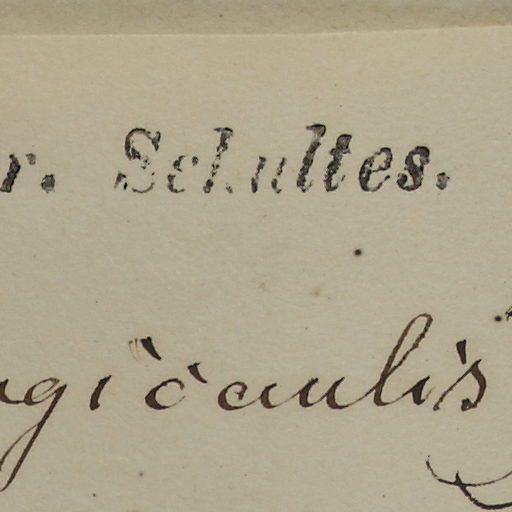 r. Schultes.
ngicaulis